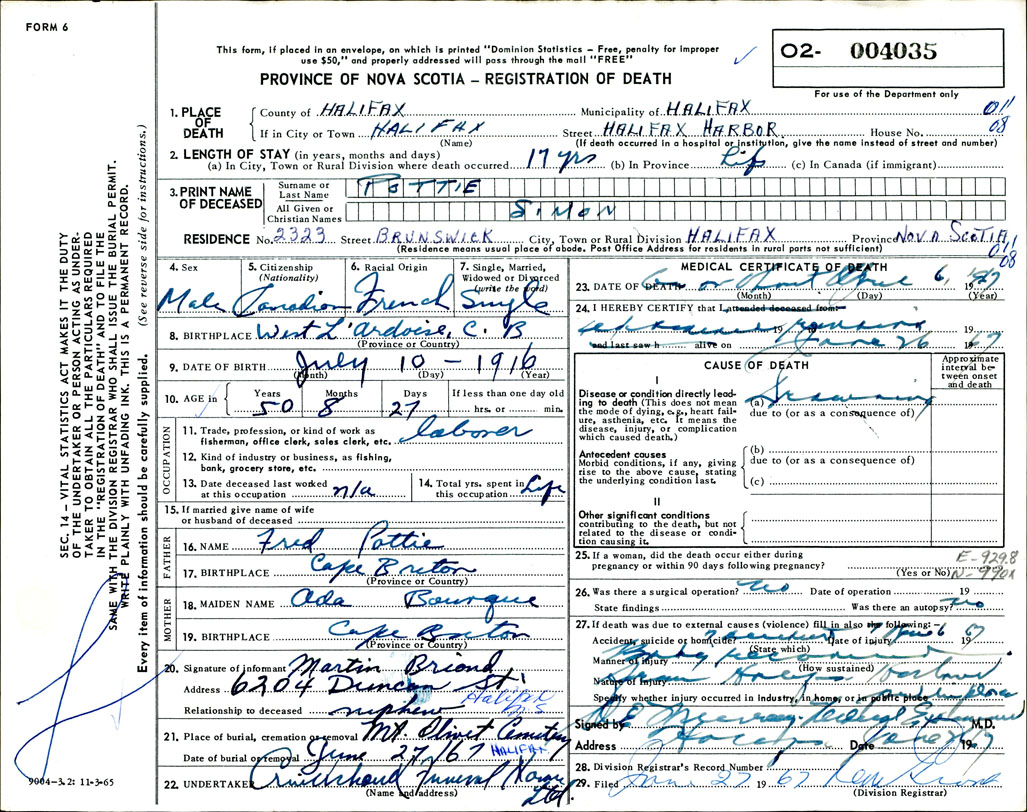 FORM 6
This form, if placed in an envelope, on which is printed "Dominion Statistics – Free, penalty for improper
use $50," and properly addressed will pass through the mail "FREE"
PROVINCE OF NOVA SCOTIA – REGISTRATION OF DEATH
O2- 004035
For use of the Department only
SEC. 14 – VITAL STATISTICS ACT MAKES IT THE DUTY
OF THE UNDERTAKER OR PERSON ACTING AS UNDER-
TAKER TO OBTAIN ALL THE PARTICULARS REQUIRED
IN THE "REGISTRATION OF DEATH" AND TO FILE THE
SAME WITH THE DIVISION REGISTRAR WHO SHALL ISSUE THE BURIAL PERMIT.
WRITE PLAINLY WITH UNFADING INK. THIS IS A PERMANENT RECORD.
Every item of information should be carefully supplied. (See reverse side for instructions.)
1. PLACE OF DEATH
County of HALIFAX Municipality of HALIFAX
If in City or Town HALIFAX Street HALIFAX HARBOR House No.
(Name) (If death occurred in a hospital or institution, give the name instead of street and number)
011
08
2. LENGTH OF STAY (in years, months and days)
(a) In City, Town or Rural Division where death occurred 17 yrs (b) In Province Life (c) In Canada (if immigrant)
3. PRINT NAME OF DECEASED
Surname or Last Name POTTIE
All Given or Christian Names SIMON
RESIDENCE No. 2323 Street BRUNSWICK City, Town or Rural Division HALIFAX Province NOVA SCOTIA
(Residence means usual place of abode. Post Office Address for residents in rural parts not sufficient)
011
08
4. Sex Male
5. Citizenship (Nationality) Canadian
6. Racial Origin French
7. Single, Married, Widowed or Divorced (write the word) Single
8. BIRTHPLACE West L'Ardoise, C. B
(Province or Country)
9. DATE OF BIRTH July 10 – 1916
(Month) (Day) (Year)
10. AGE in Years 50 Months 8 Days 27 If less than one day old hrs. or min.
OCCUPATION
11. Trade, profession, or kind of work as fisherman, office clerk, sales clerk, etc. laborer
12. Kind of industry or business, as fishing, bank, grocery store, etc.
13. Date deceased last worked at this occupation n/a
14. Total yrs. spent in this occupation Life
15. If married give name of wife or husband of deceased
FATHER
16. NAME Fred Pottie
17. BIRTHPLACE Cape Breton
(Province or Country)
MOTHER
18. MAIDEN NAME Ada Bourque
19. BIRTHPLACE Cape Breton
(Province or Country)
20. Signature of informant Martin Briond
Address 6204 Duncan St. Halifax N S
Relationship to deceased nephew
21. Place of burial, cremation or removal Mt. Olivet Cemetery
Date of burial or removal June 27/67 HALIFAX
22. UNDERTAKER Cruikshank Funeral Home Ltd.
(Name and address)
9004-3.2: 11-3-65
MEDICAL CERTIFICATE OF DEATH
23. DATE OF DEATH on or about April 6, 1967
(Month) (Day) (Year)
24. I HEREBY CERTIFY that I attended deceased from
19
and last saw h alive on June 26 1967
CAUSE OF DEATH
Approximate interval between onset and death
I
Disease or condition directly leading to death (This does not mean the mode of dying, e.g., heart failure, asthenia, etc. It means the disease, injury, or complication which caused death.)
(a) Drowning
due to (or as a consequence of)
Antecedent causes
Morbid conditions, if any, giving rise to the above cause, stating the underlying condition last.
(b)
due to (or as a consequence of)
(c)
II
Other significant conditions
contributing to the death, but not related to the disease or condition causing it.
25. If a woman, did the death occur either during
pregnancy or within 90 days following pregnancy?
(Yes or No)
E-9298
N-990X
26. Was there a surgical operation? No Date of operation 19
State findings Was there an autopsy? No
27. If death was due to external causes (violence) fill in also the following:-
Accident, suicide or homicide? Accident Date of injury April 6 1967
(State which)
Manner of injury Body recovered
(How sustained)
Nature of Injury from Halifax Harbour
Specify whether injury occurred in Industry, in home, or in public place
Signed by Murray Medical Examiner M.D.
Address Halifax Date June 27 1967
28. Division Registrar's Record Number
29. Filed June 27 1967
(Division Registrar)